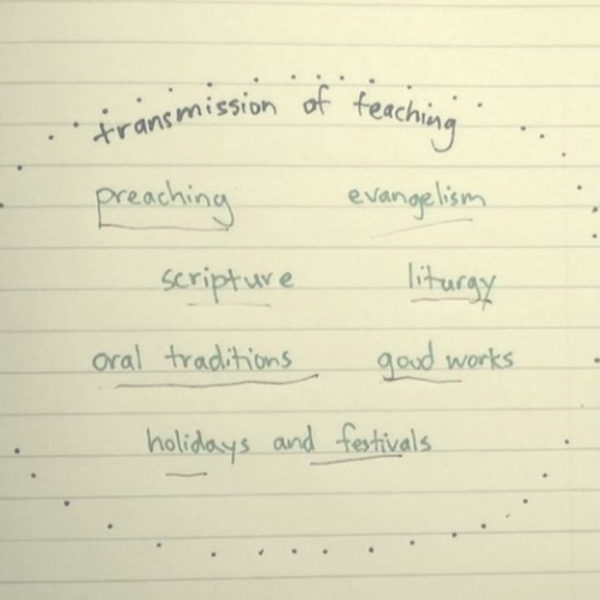 transmission of teaching
preaching evangelism
scripture liturgy
oral traditions good works
holidays and festivals